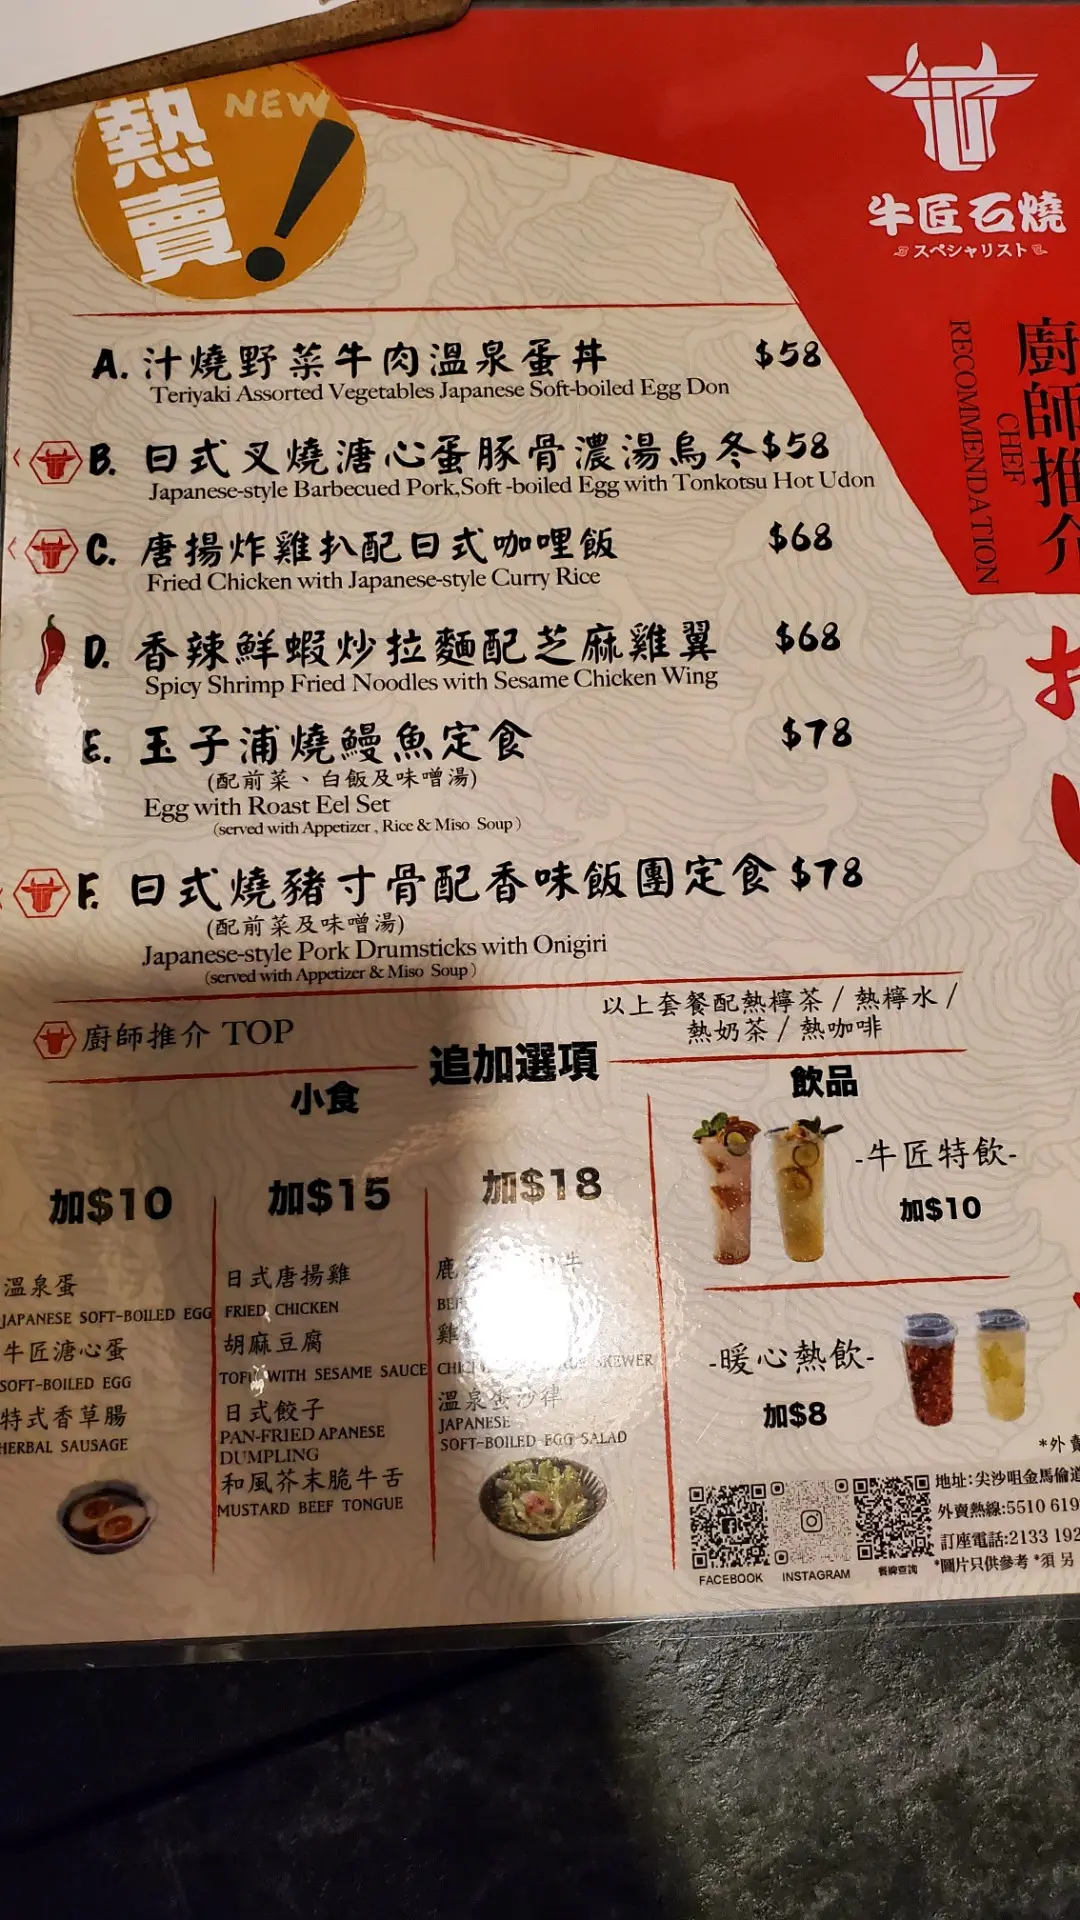 熱賣 NEW !
牛匠石燒
スペシャリスト
廚師推介
CHEF
RECOMMENDATION
A. 汁燒野菜牛肉溫泉蛋丼 $58
Teriyaki Assorted Vegetables Japanese Soft-boiled Egg Don
B. 日式叉燒溏心蛋豚骨濃湯烏冬 $58
Japanese-style Barbecued Pork,Soft-boiled Egg with Tonkotsu Hot Udon
C. 唐揚炸雞扒配日式咖哩飯 $68
Fried Chicken with Japanese-style Curry Rice
D. 香辣鮮蝦炒拉麵配芝麻雞翼 $68
Spicy Shrimp Fried Noodles with Sesame Chicken Wing
E. 玉子浦燒鰻魚定食 $78
(配前菜、白飯及味噌湯)
Egg with Roast Eel Set
(served with Appetizer, Rice & Miso Soup)
F. 日式燒豬寸骨配香味飯團定食 $78
(配前菜及味噌湯)
Japanese-style Pork Drumsticks with Onigiri
(served with Appetizer & Miso Soup)
廚師推介 TOP
以上套餐配熱檸茶 / 熱檸水 /
熱奶茶 / 熱咖啡
追加選項
小食
加$10
溫泉蛋
JAPANESE SOFT-BOILED EGG
牛匠溏心蛋
SOFT-BOILED EGG
特式香草腸
HERBAL SAUSAGE
加$15
日式唐揚雞
FRIED CHICKEN
胡麻豆腐
TOFU WITH SESAME SAUCE
日式餃子
PAN-FRIED APANESE
DUMPLING
和風芥末脆牛舌
MUSTARD BEEF TONGUE
加$18
鹿
牛
雞
SKEWER
溫泉蛋沙律
JAPANESE
SOFT-BOILED EGG SALAD
飲品
-牛匠特飲-
加$10
-暖心熱飲-
加$8
*外賣
地址:尖沙咀金馬倫道
外賣熱線:5510 619
訂座電話:2133 192
*圖片只供參考 *須另
FACEBOOK
INSTAGRAM
餐牌查詢